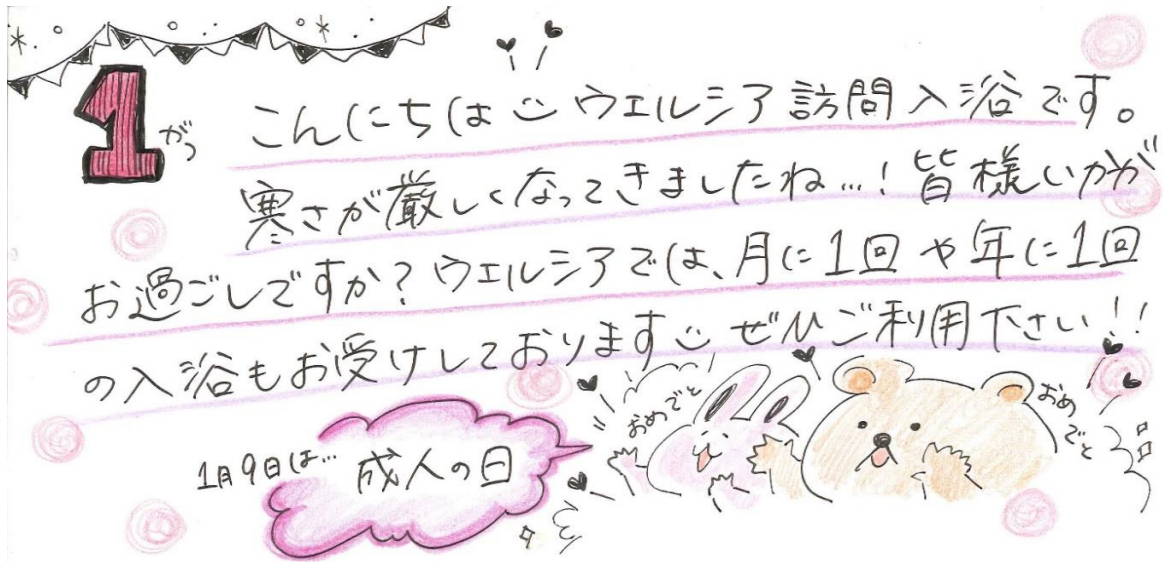 1がつ
こんにちは ウエルシア訪問入浴です。
寒さが厳しくなってきましたね…！皆様いかが
お過ごしですか？ウエルシアでは、月に1回や年に1回
の入浴もお受けしております ぜひご利用下さい!!
おめでと
おめでと
1月9日は…
成人の日